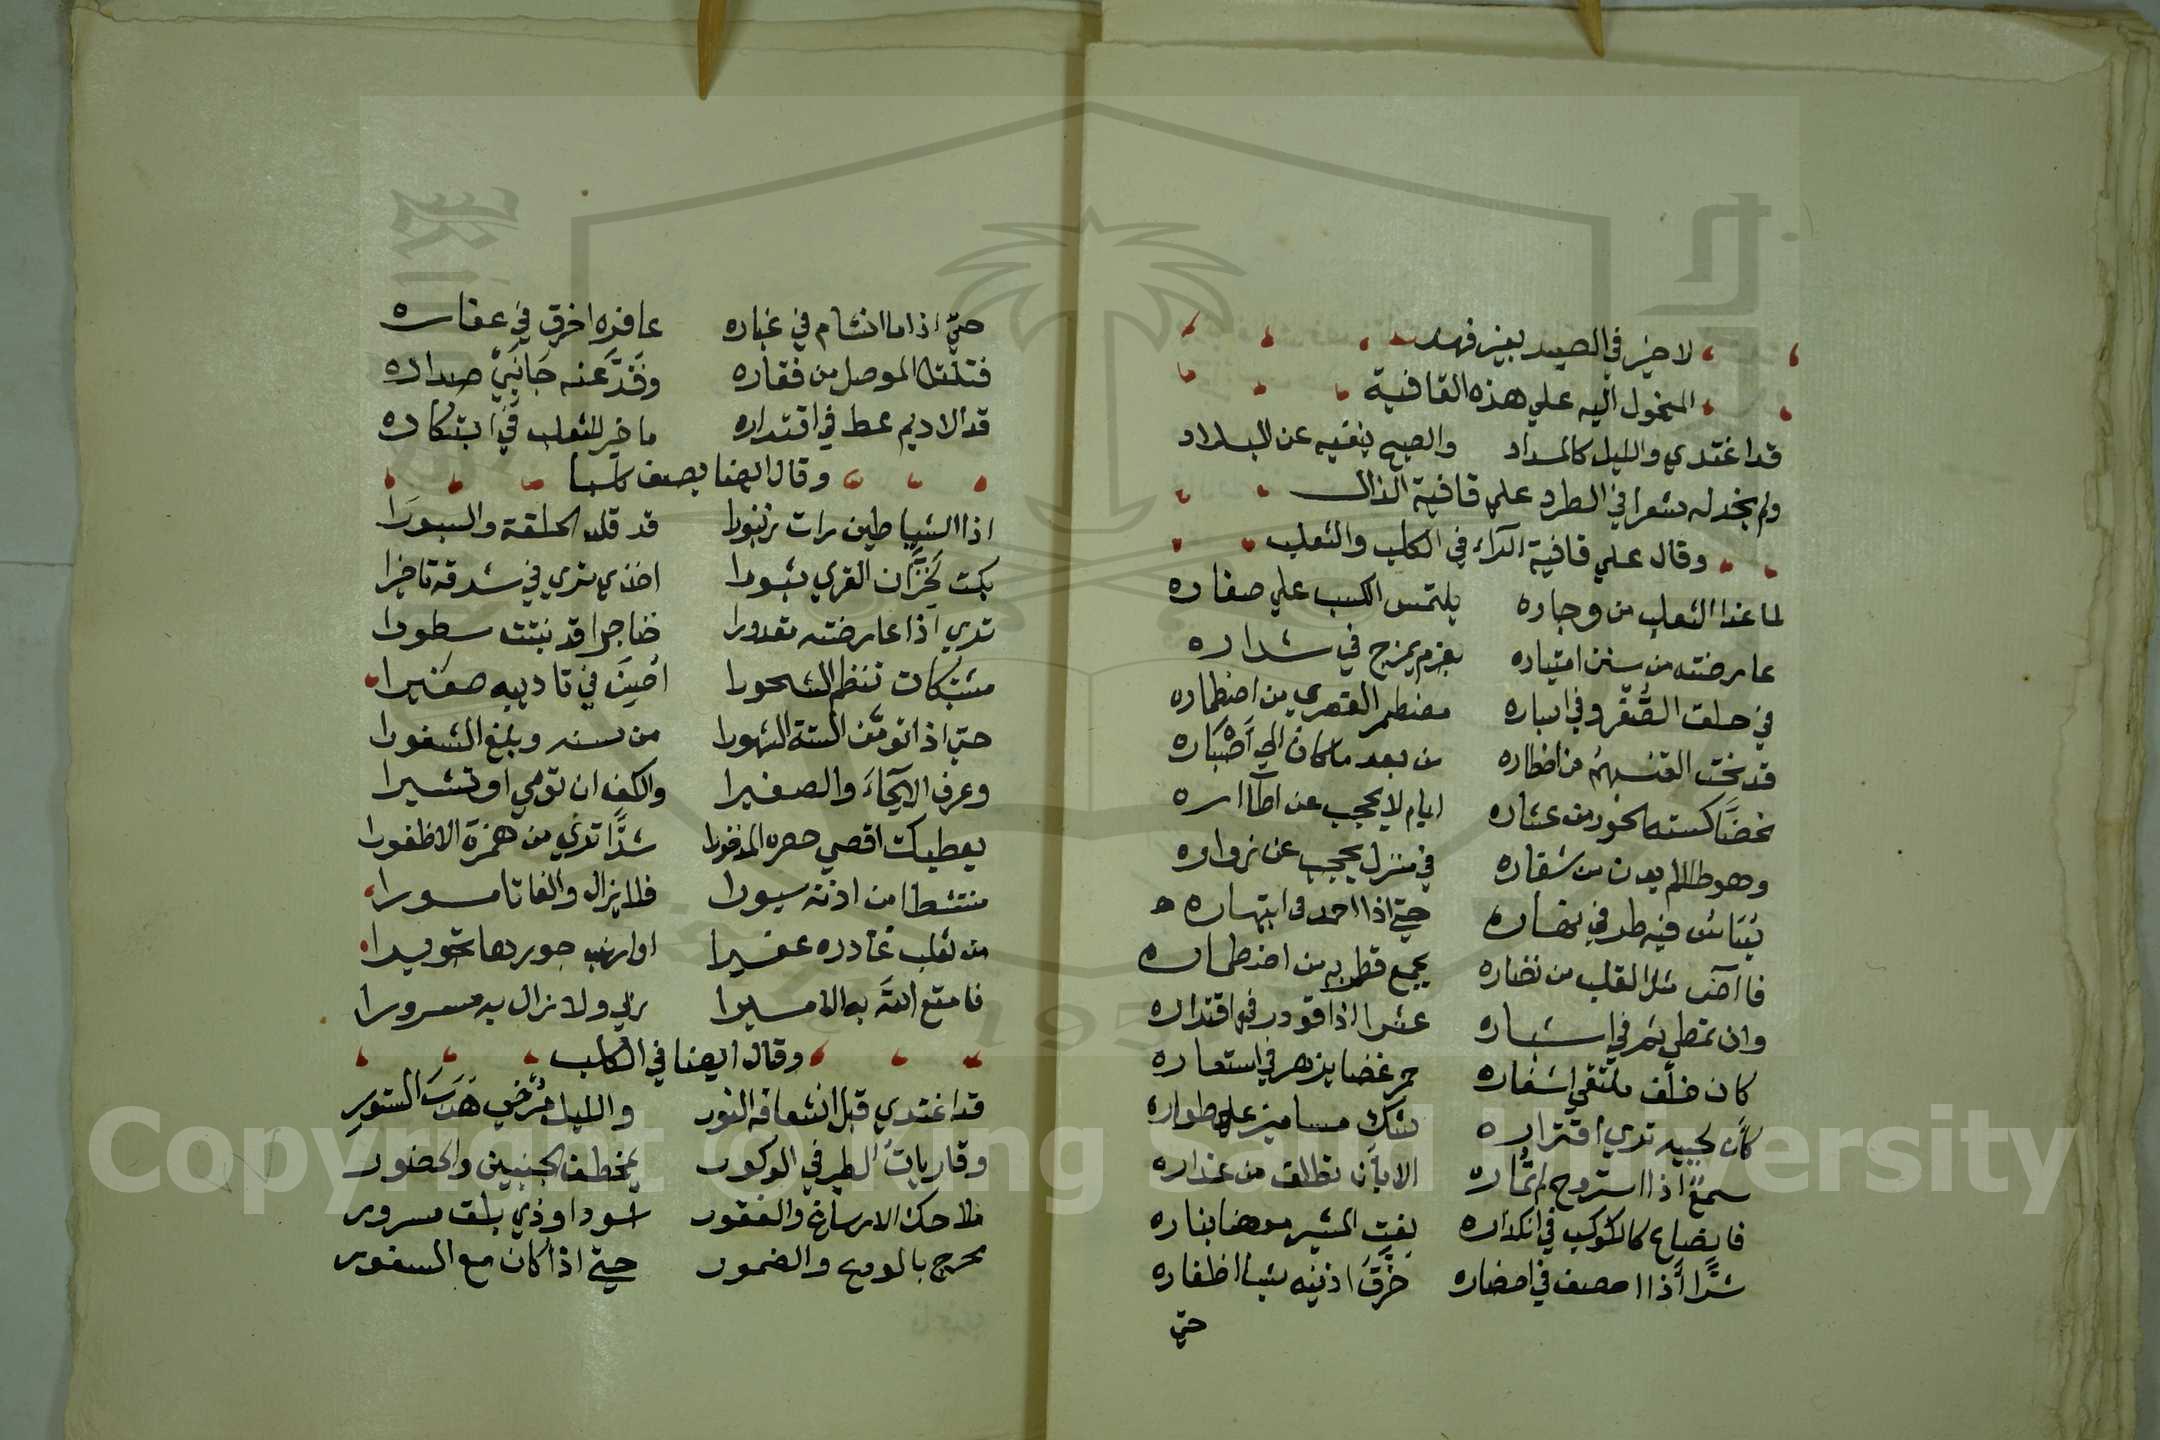 لا خير في الصيد بغير فهد
المنحول اليه علي هذه القافية
قد اغتدي والليل كالمداد والصبح ينفيه عن البلاد
ولم نجد له شعرا في الطرد علي قافية الذال
وقال علي قافية الراء في الكلب والثعلب
لما غدا الثعلب من وجاره يلتمس الكسب علي صغاره
عارضته من سنن امتياره بعزم يمزج في شداره
في حلق الصُّفْر وفي اسياره مضطمر القصري من اضطماره
قد نحت التقسهم من اقطاره من بعد ما كان الي اَصْبَاره
غضَّا كسته الخور من عشاره ايام لا يحجب عن اطآاره
وهو طلا لم يدن من شفاره في منزل يحجب عن زواره
يُسَاس فيه طرفي نهاره حتي اذا احمد في ابتهاره
فا اض مثل القلب من نضاره يجمع قطريه من اضطماره
وان تمطي تم في اسشباره عشرا اذا قودر في اقتداره
كان خلف ملتقي اشفاره جمر غضا يزهر في استعاره
كان لحييه تدي افتراره شك مسامير علي طواره
سمعٌ اذا استروح لم تُماره الا بان تطلق من عذاره
فانصاع كالكوكب في انكداره لفت المشير موهنا بناره
شدًّا اذا احصف في احضاره خَرَّقَ اذنيه شبا اظفاره
حتي
حتي اذا ما انشام في غباره عافره اخرق في عفاره
فتلتل الموصل من فقاره وقَدَّ عنه جَانبَيْ صداره
قد الاديم عط في اقتداره ما خير للثعلب في ابتكاره
وقال ايضا يصف كلبا
اذا الشياطين رات زنبورا قد قلد الحلقة والسيورَا
بكت لخِزَّان القري ثبورا ادفي تري في شدقه تاخيرا
تري اذا عارضته مقدورا خناجرا قد نبتت سطورا
مشتبكات تنظم الشحورا اُحْسِنَ في تاديبه صغيرا
حتي اذا توفي الستة الشهورا من سنه وبلغ الشغورا
وعرف الايحاءَ والصفيرا والكف ان تومي او تشيرا
يعطيك اقصي حصره المذخورا شدًّا تري من همزة الاظفورا
منتشطا من اذنه سيورا فلا يزال والغا تامورا
من ثعلب غادره عفيرا او ارنب جورها تجويرا
فا متع اللهَ به الاميرا ربي ولا زال به مسرورا
وقال ايضا في الكلب
قد اغتدي قبل انشعاق النور والليل مُرْخي هُدَبَ الستورِ
وقاريات الطير في الوكور بمخطف الجنبين والخضور
ملاحك الارساغ والفقور اسود او ذي بلق مسرور
محرج بالودع والضمور حتي اذا كان مع السفور